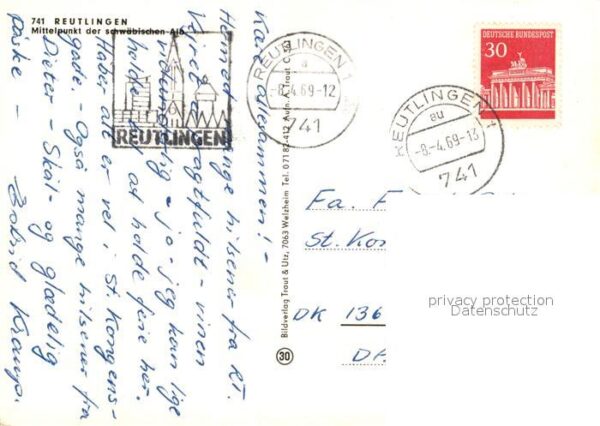 741 REUTLINGEN
Mittelpunkt der schwäbischen Alb
REUTLINGEN
REUTLINGEN 1
a
-8.-4.69-12
741
REUTLINGEN 1
au
-8.-4.69-13
741
DEUTSCHE BUNDESPOST
30
Kære allesammen! -
mange hilsener fra RT.
Vejret er pragtfuldt - vinen
- jo - jeg kan lige
holde at holde ferie her.
Håber alt er vel i St. Kongens-
gade. - Også mange hilsener fra
Dieter - Skål - og glædelig
påske -
Bildverlag Trout & Utz, 7063 Welzheim Tel. 07182-412
30
Fa. F
St. Kon
DK 136
privacy protection
Datenschutz